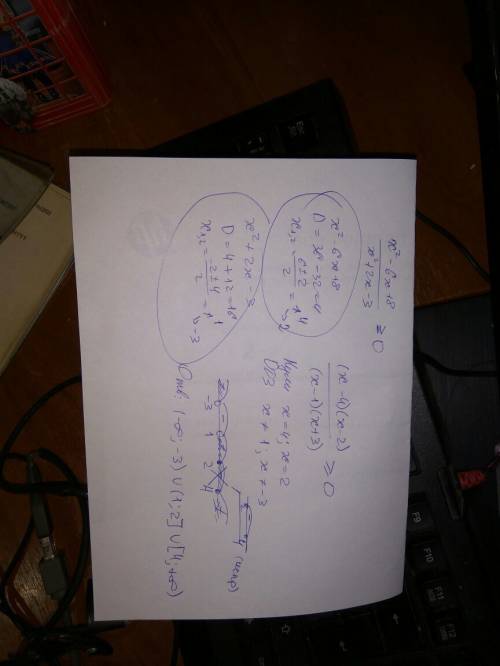 x² - 6x + 8 / x² + 2x - 3 ≥ 0
x² - 6x + 8
D = 36 - 32 = 4
x₁,₂ = 6 ± 2 / 2 = 4; 2
x² + 2x - 3
D = 4 + 12 = 16
x₁,₂ = -2 ± 4 / 2 = 1; -3
(x - 4)(x - 2) / (x - 1)(x + 3) ≥ 0
Нули x = 4; x = 2
ОДЗ x ≠ 1; x ≠ -3
-3 1 2 4
Отв: (-∞; -3) ∪ (1; 2] ∪ [4; +∞)
F9
F10
F11
F12